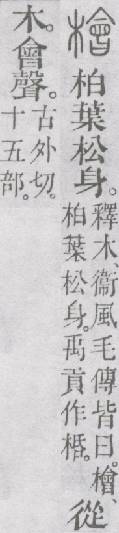 檜 柏葉松身。釋木、衞風毛傳皆曰。檜、
柏葉松身。禹貢作栝。从
木。會聲。古外切。
十五部。